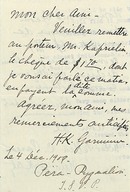 Mon cher ami.
Veuillez remettre
au porteur M. Kaprelian
le chèque de $ 120, dont
je vous ai parlé ce matin,
en payant la dite
somme.
Agréez, mon ami, mes
remerciements anticipés
H.K.
Le 4 Déc. 1909.
Péra-Pygmalion